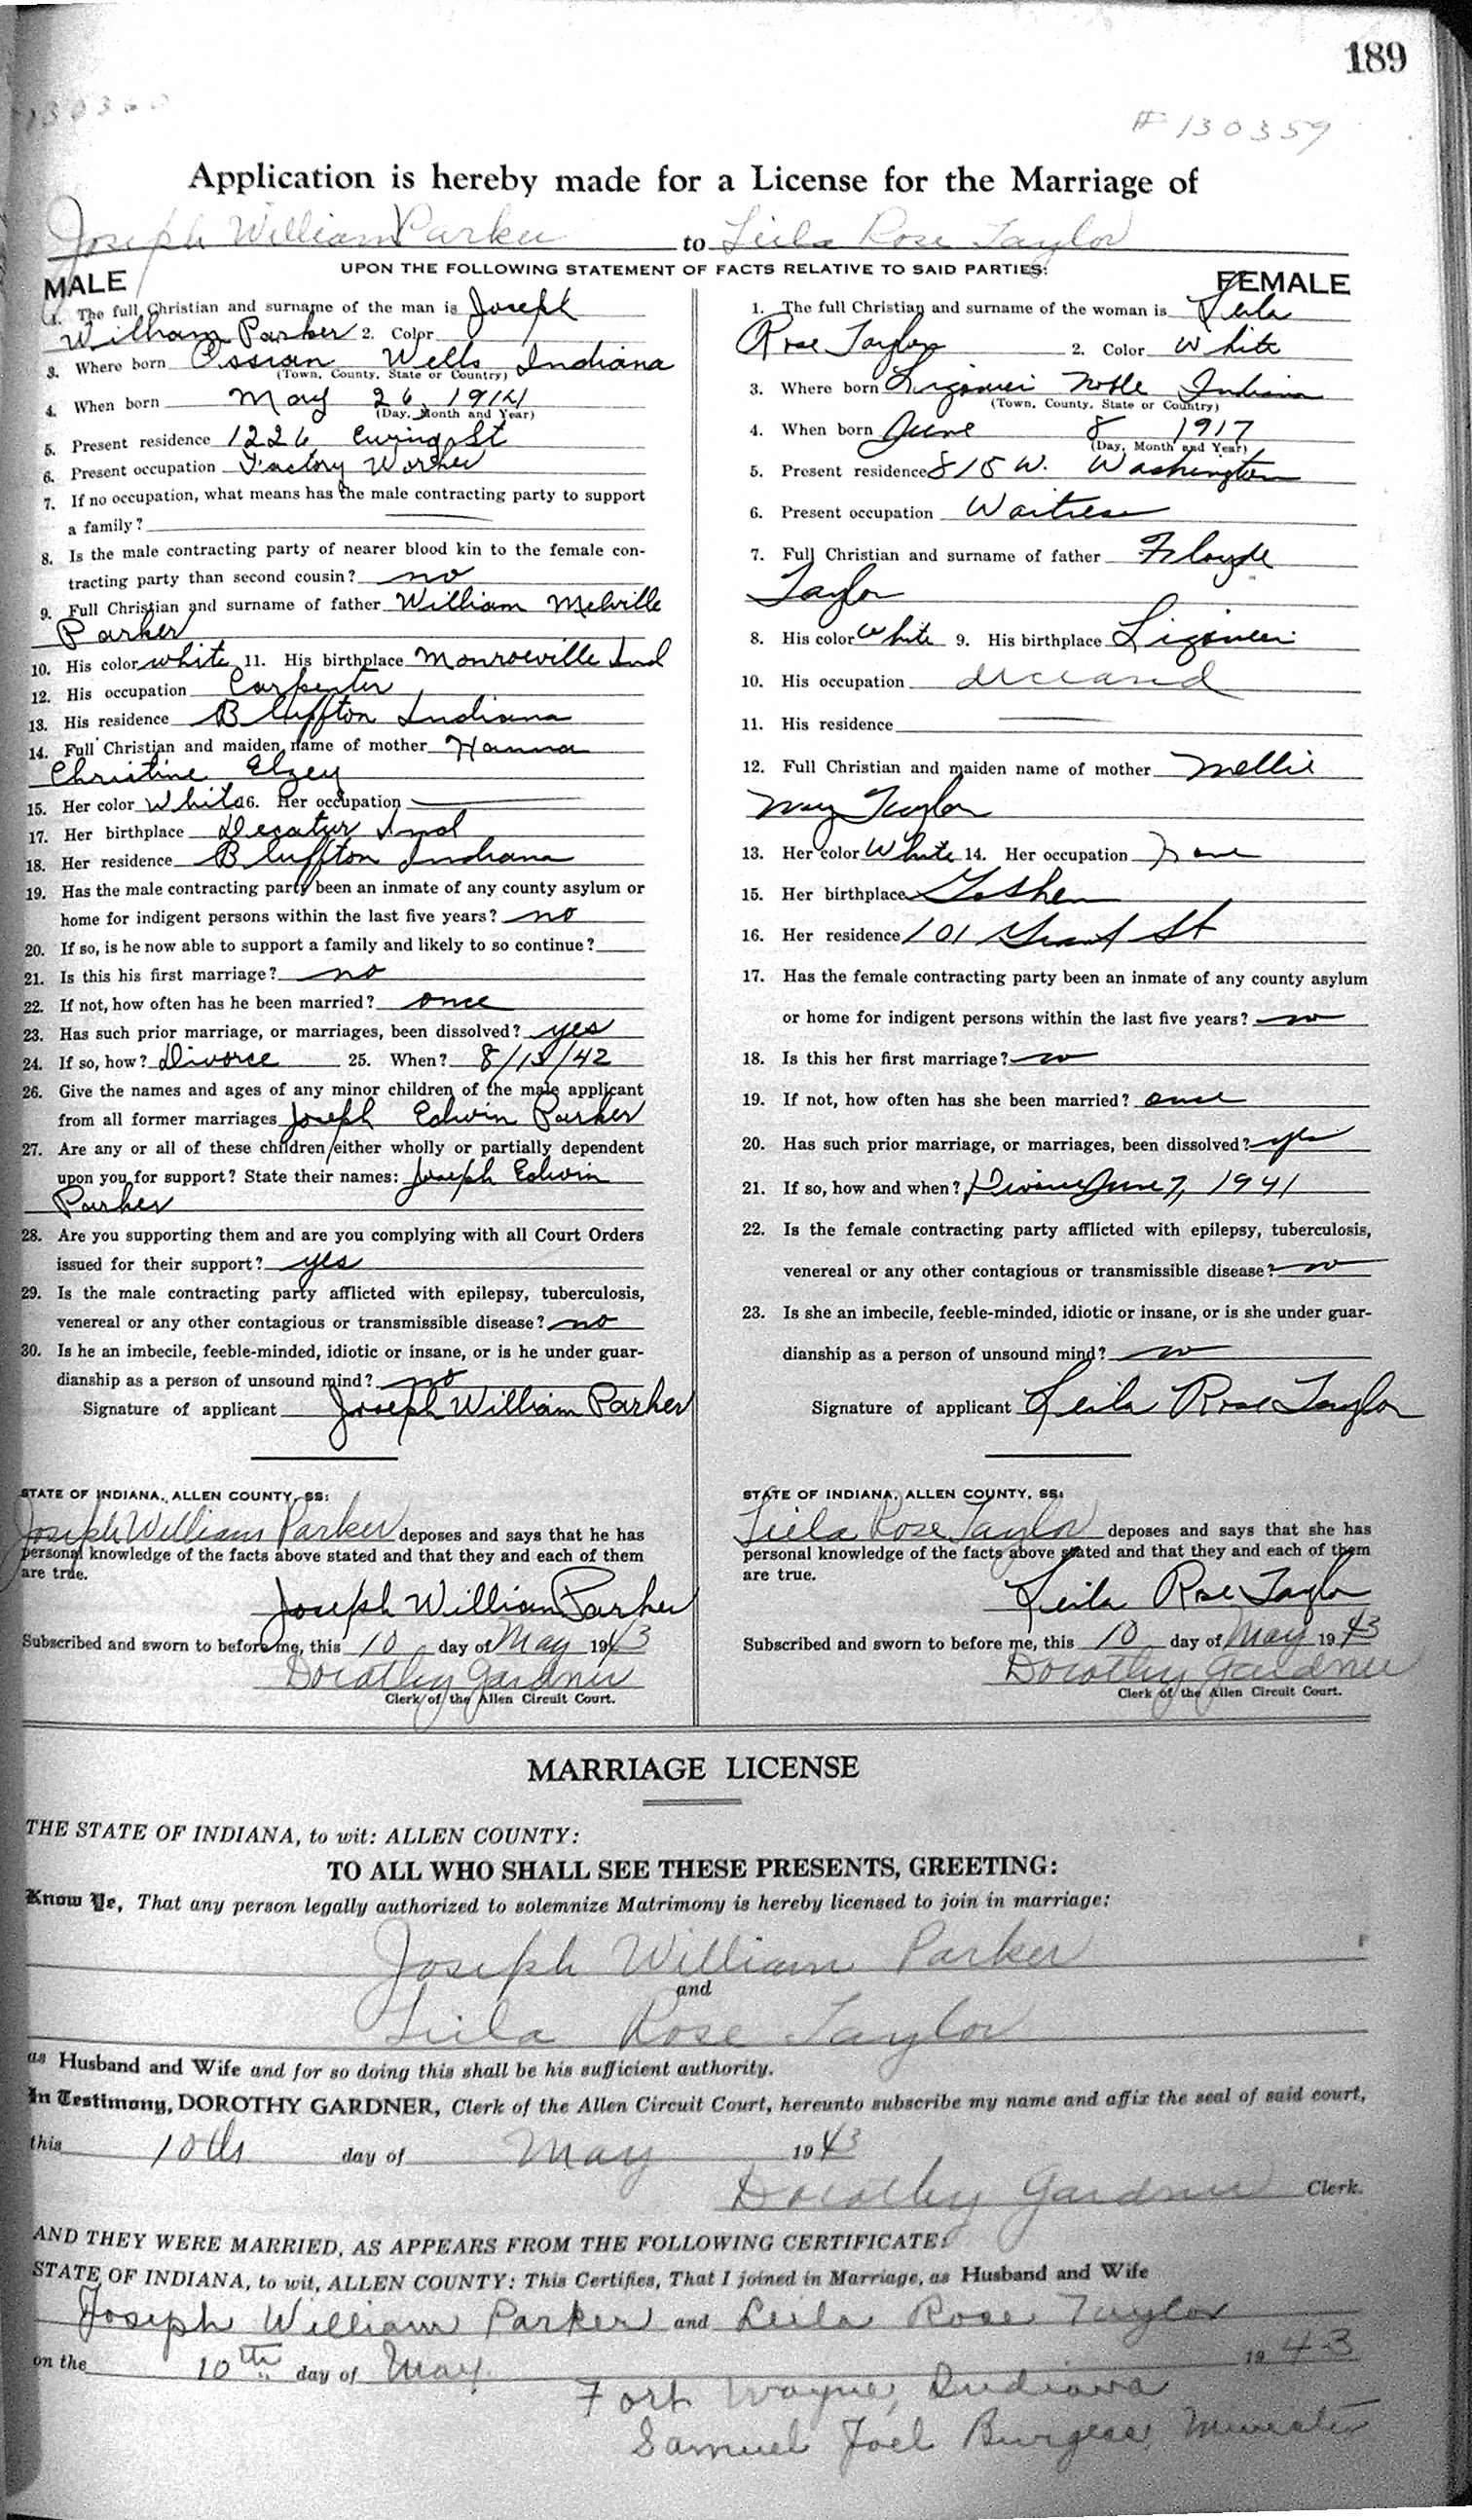 189
130360
# 130359
Application is hereby made for a License for the Marriage of
Joseph William Parker to Leila Rose Taylor
UPON THE FOLLOWING STATEMENT OF FACTS RELATIVE TO SAID PARTIES:
MALE
1. The full Christian and surname of the man is Joseph
William Parker 2. Color
3. Where born Ossian Wells Indiana
(Town, County, State or Country)
4. When born May 26, 1914
(Day, Month and Year)
5. Present residence 1226 Ewing St
6. Present occupation Factory Worker
7. If no occupation, what means has the male contracting party to support
a family?
8. Is the male contracting party of nearer blood kin to the female con-
tracting party than second cousin? no
9. Full Christian and surname of father William Melville
Parker
10. His color white 11. His birthplace Monroeville Ind
12. His occupation Carpenter
13. His residence Bluffton Indiana
14. Full Christian and maiden name of mother Hanna
Christine Elzey
15. Her color White 16. Her occupation
17. Her birthplace Decatur Ind
18. Her residence Bluffton Indiana
19. Has the male contracting party been an inmate of any county asylum or
home for indigent persons within the last five years? no
20. If so, is he now able to support a family and likely to so continue?
21. Is this his first marriage? no
22. If not, how often has he been married? once
23. Has such prior marriage, or marriages, been dissolved? yes
24. If so, how? Divorce 25. When? 8/13/42
26. Give the names and ages of any minor children of the male applicant
from all former marriages Joseph Edwin Parker
27. Are any or all of these children either wholly or partially dependent
upon you for support? State their names: Joseph Edwin
Parker
28. Are you supporting them and are you complying with all Court Orders
issued for their support? yes
29. Is the male contracting party afflicted with epilepsy, tuberculosis,
venereal or any other contagious or transmissible disease? no
30. Is he an imbecile, feeble-minded, idiotic or insane, or is he under guar-
dianship as a person of unsound mind? no
Signature of applicant Joseph William Parker
STATE OF INDIANA, ALLEN COUNTY, SS:
Joseph William Parker deposes and says that he has
personal knowledge of the facts above stated and that they and each of them
are true.
Joseph William Parker
Subscribed and sworn to before me, this 10 day of May 1943
Dorothy Gardner
Clerk of the Allen Circuit Court.
FEMALE
1. The full Christian and surname of the woman is Leila
Rose Taylor 2. Color White
3. Where born Ligonier Noble Indiana
(Town, County, State or Country)
4. When born June 8 1917
(Day, Month and Year)
5. Present residence 815 W. Washington
6. Present occupation Waitress
7. Full Christian and surname of father Floyde
Taylor
8. His color White 9. His birthplace Ligonier
10. His occupation deceased
11. His residence
12. Full Christian and maiden name of mother Mellie
May Taylor
13. Her color White 14. Her occupation None
15. Her birthplace Goshen
16. Her residence 101 Grant St
17. Has the female contracting party been an inmate of any county asylum
or home for indigent persons within the last five years? no
18. Is this her first marriage? no
19. If not, how often has she been married? once
20. Has such prior marriage, or marriages, been dissolved? yes
21. If so, how and when? Divorce June 7, 1941
22. Is the female contracting party afflicted with epilepsy, tuberculosis,
venereal or any other contagious or transmissible disease? no
23. Is she an imbecile, feeble-minded, idiotic or insane, or is she under guar-
dianship as a person of unsound mind? no
Signature of applicant Leila Rose Taylor
STATE OF INDIANA, ALLEN COUNTY, SS:
Leila Rose Taylor deposes and says that she has
personal knowledge of the facts above stated and that they and each of them
are true.
Leila Rose Taylor
Subscribed and sworn to before me, this 10 day of May 1943
Dorothy Gardner
Clerk of the Allen Circuit Court.
MARRIAGE LICENSE
THE STATE OF INDIANA, to wit: ALLEN COUNTY:
TO ALL WHO SHALL SEE THESE PRESENTS, GREETING:
Know Ye, That any person legally authorized to solemnize Matrimony is hereby licensed to join in marriage:
Joseph William Parker
and
Leila Rose Taylor
as Husband and Wife and for so doing this shall be his sufficient authority.
In Testimony, DOROTHY GARDNER, Clerk of the Allen Circuit Court, hereunto subscribe my name and affix the seal of said court,
this 10th day of May 1943
Dorothy Gardner Clerk.
AND THEY WERE MARRIED, AS APPEARS FROM THE FOLLOWING CERTIFICATE:
STATE OF INDIANA, to wit, ALLEN COUNTY: This Certifies, That I joined in Marriage, as Husband and Wife
Joseph William Parker and Leila Rose Taylor
on the 10th day of May 1943
Fort Wayne, Indiana
Samuel Joel Burgess, Minister